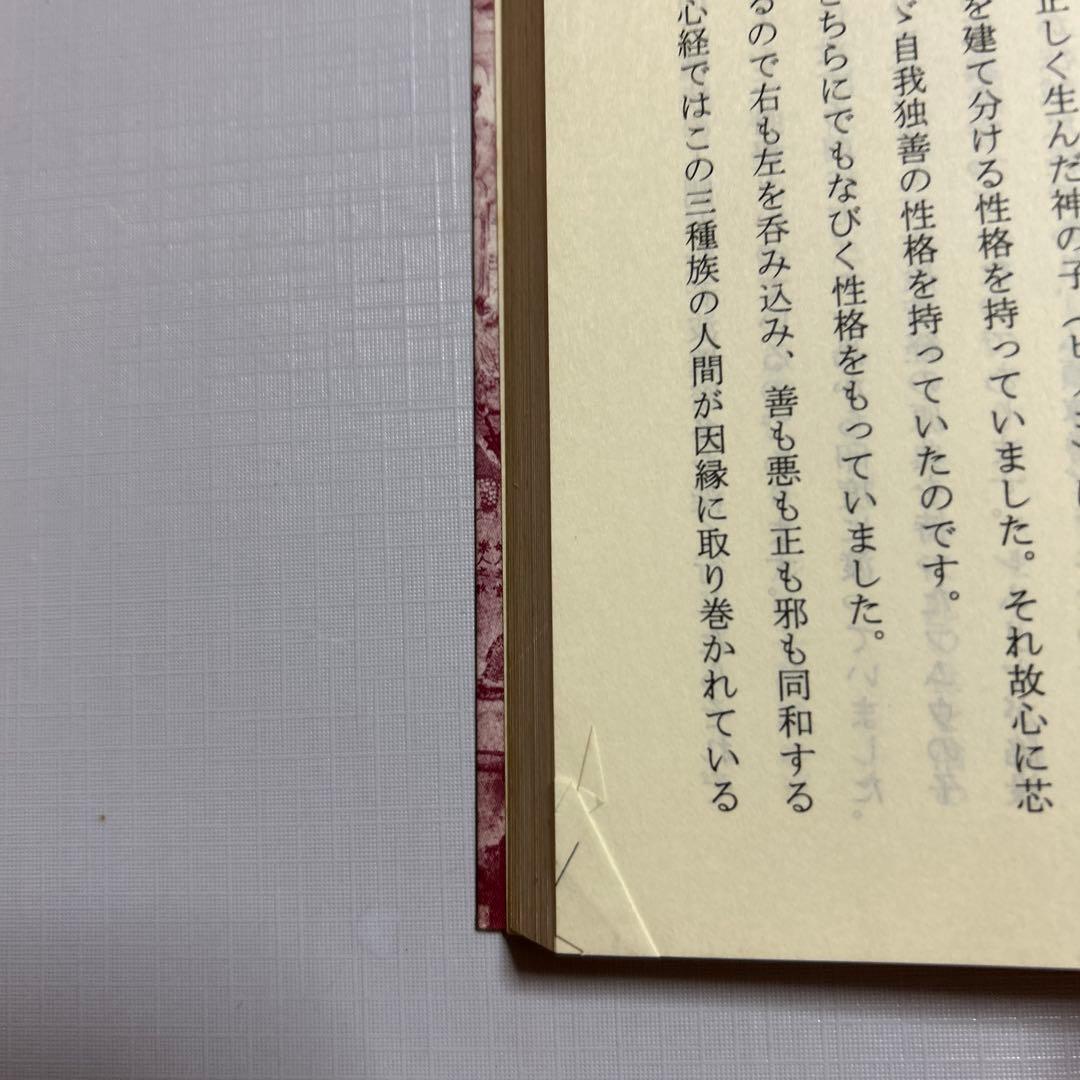 正しく生んだ神の子
を建て分ける性格を持っていました。それ故心に芯
ゞ自我独善の性格を持っていたのです。
どちらにでもなびく性格をもっていました。
るので右も左を呑み込み、善も悪も正も邪も同和する
心経ではこの三種族の人間が因縁に取り巻かれている